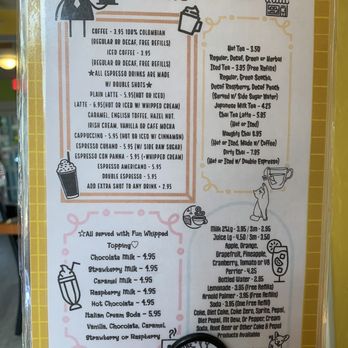 COFFEE - 3.95 100% COLOMBIAN
(REGULAR OR DECAF, FREE REFILLS)
ICED COFFEE - 3.95
(REGULAR OR DECAF, FREE REFILLS)
☆ALL ESPRESSO DRINKS ARE MADE
W/ DOUBLE SHOTS☆
PLAIN LATTE - 5.95(HOT OR ICED)
LATTE - 6.95(HOT OR ICED W/ WHIPPED CREAM)
CARAMEL, ENGLISH TOFFEE, HAZEL NUT,
IRISH CREAM, VANILLA OR CAFE MOCHA
CAPPUCCINO - 5.95 (HOT OR ICED W/ CINNAMON)
ESPRESSO CUBANO - 5.95 (W/ SIDE RAW SUGAR)
ESPRESSO CON PANNA - 5.95 (+WHIPPED CREAM)
ESPRESSO AMERICANO - 5.95
DOUBLE ESPRESSO - 5.95
ADD EXTRA SHOT TO ANY DRINK - 2.95
Hot Tea - 3.50
Regular, Decaf, Green or Herbal
Iced Tea - 3.95 (Free Refills)
Regular, Green Sencha,
Decaf Raspberry, Decaf Peach
(Served w/ Side Sugar Water)
Japanese Milk Tea - 4.25
Chai Tea Latte - 5.95
(Hot or Iced)
Naughty Chai 8.95
(Hot or Iced, Made w/ Coffee)
Dirty Chai - 7.95
(Hot or Iced w/ Double Espresso)
☆All served with Fun Whipped
Topping♡
Chocolate Milk - 4.95
Strawberry Milk - 4.95
Caramel Milk - 4.95
Raspberry Milk - 4.95
Hot Chocolate - 4.95
Italian Cream Soda - 5.95
Vanilla, Chocolate, Caramel,
Strawberry or Raspberry
Milk 2%Lg - 3.95 / Sm - 2.95
Juice Lg - 4.50 / Sm - 3.50
Apple, Orange,
Grapefruit, Pineapple,
Cranberry, Tomato or V8
Perrier - 4.25
Bottled Water - 2.95
Lemonade - 3.95 (Free Refills)
Arnold Palmer - 3.95 (Free Refills)
Soda - 3.95 (One Free Refill)
Coke, Diet Coke, Coke Zero, Sprite, Pepsi,
Diet Pepsi, Mt Dew, Dr Pepper, Cream
Soda, Root Beer or Other Coke & Pepsi
Products Available